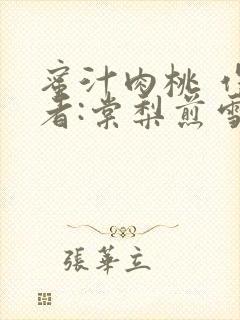 蜜汁肉桃
者:棠梨煎雪
張華立